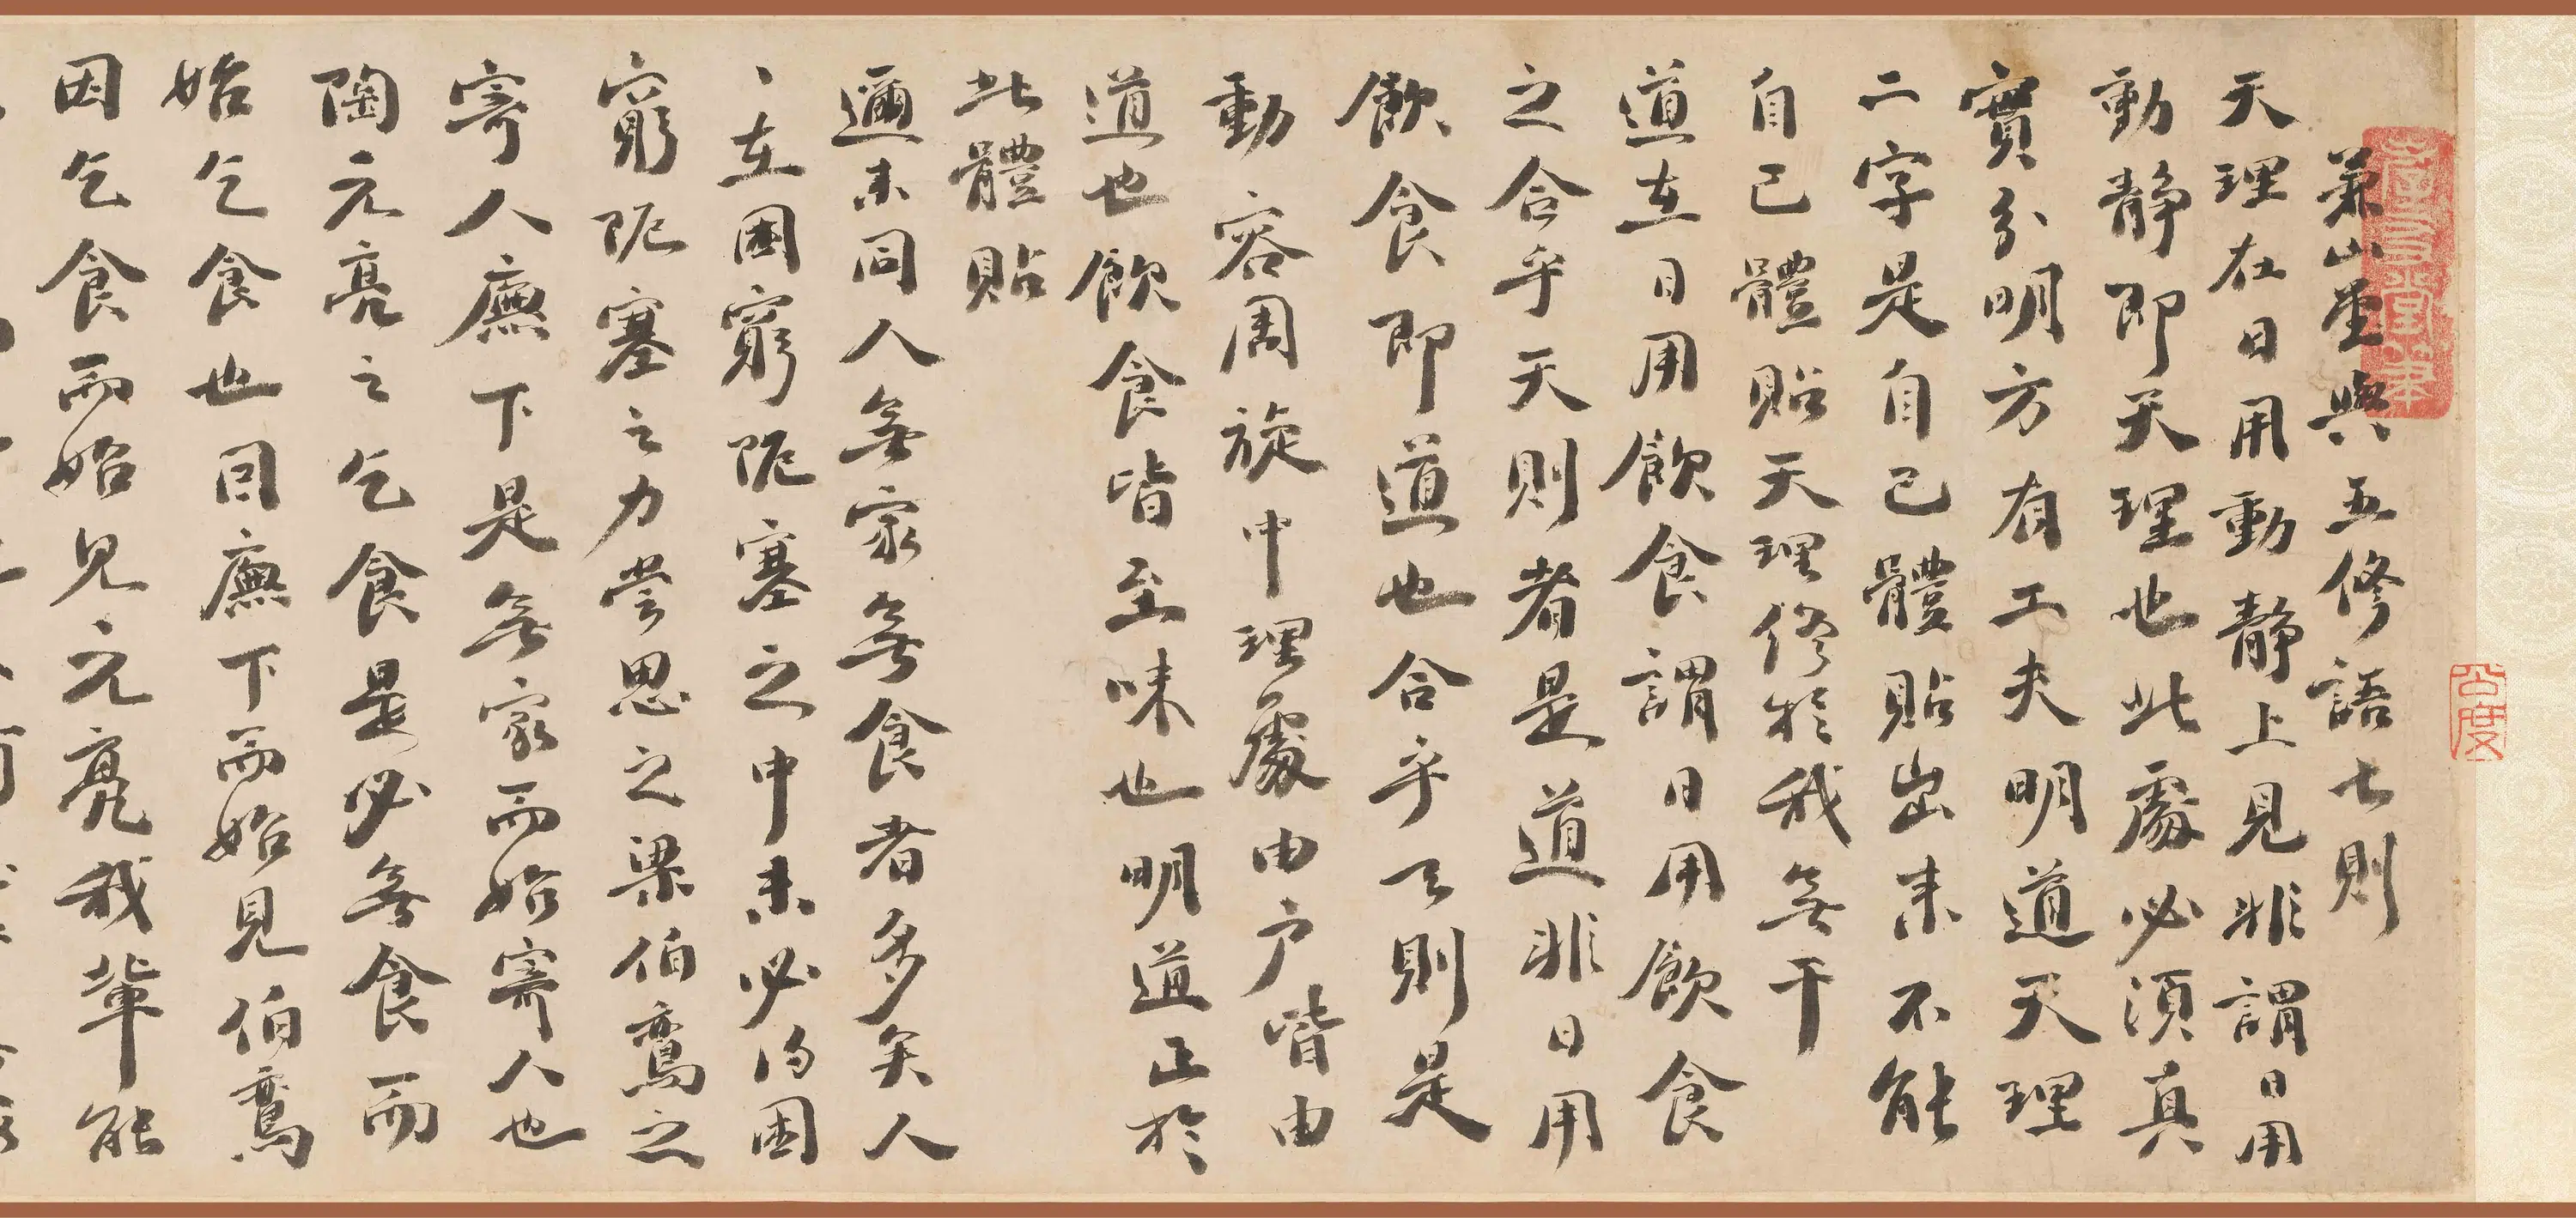 兼山堂與五修語七則
天理在日用動靜上見非謂日用
動靜即天理也此處必須真
實分明方有工夫明道天理
二字是自己體貼出來不能
自己體貼天理終於我無干
道在日用飲食謂日用飲食
之合乎天則者是道非日用
飲食即道也合乎天則是
動容周旋中理處由戶皆由
道也飲食皆至味也明道正於
此體貼
邇來同人無家無食者多矣人
人在困窮阨塞之中未必得困
窮阨塞之力嘗思之梁伯鸞之
寄人廡下是無家而始寄人也
陶元亮之乞食是必無食而
始乞食也因廡下而始見伯鸞
因乞食而始見元亮我輩能
公度